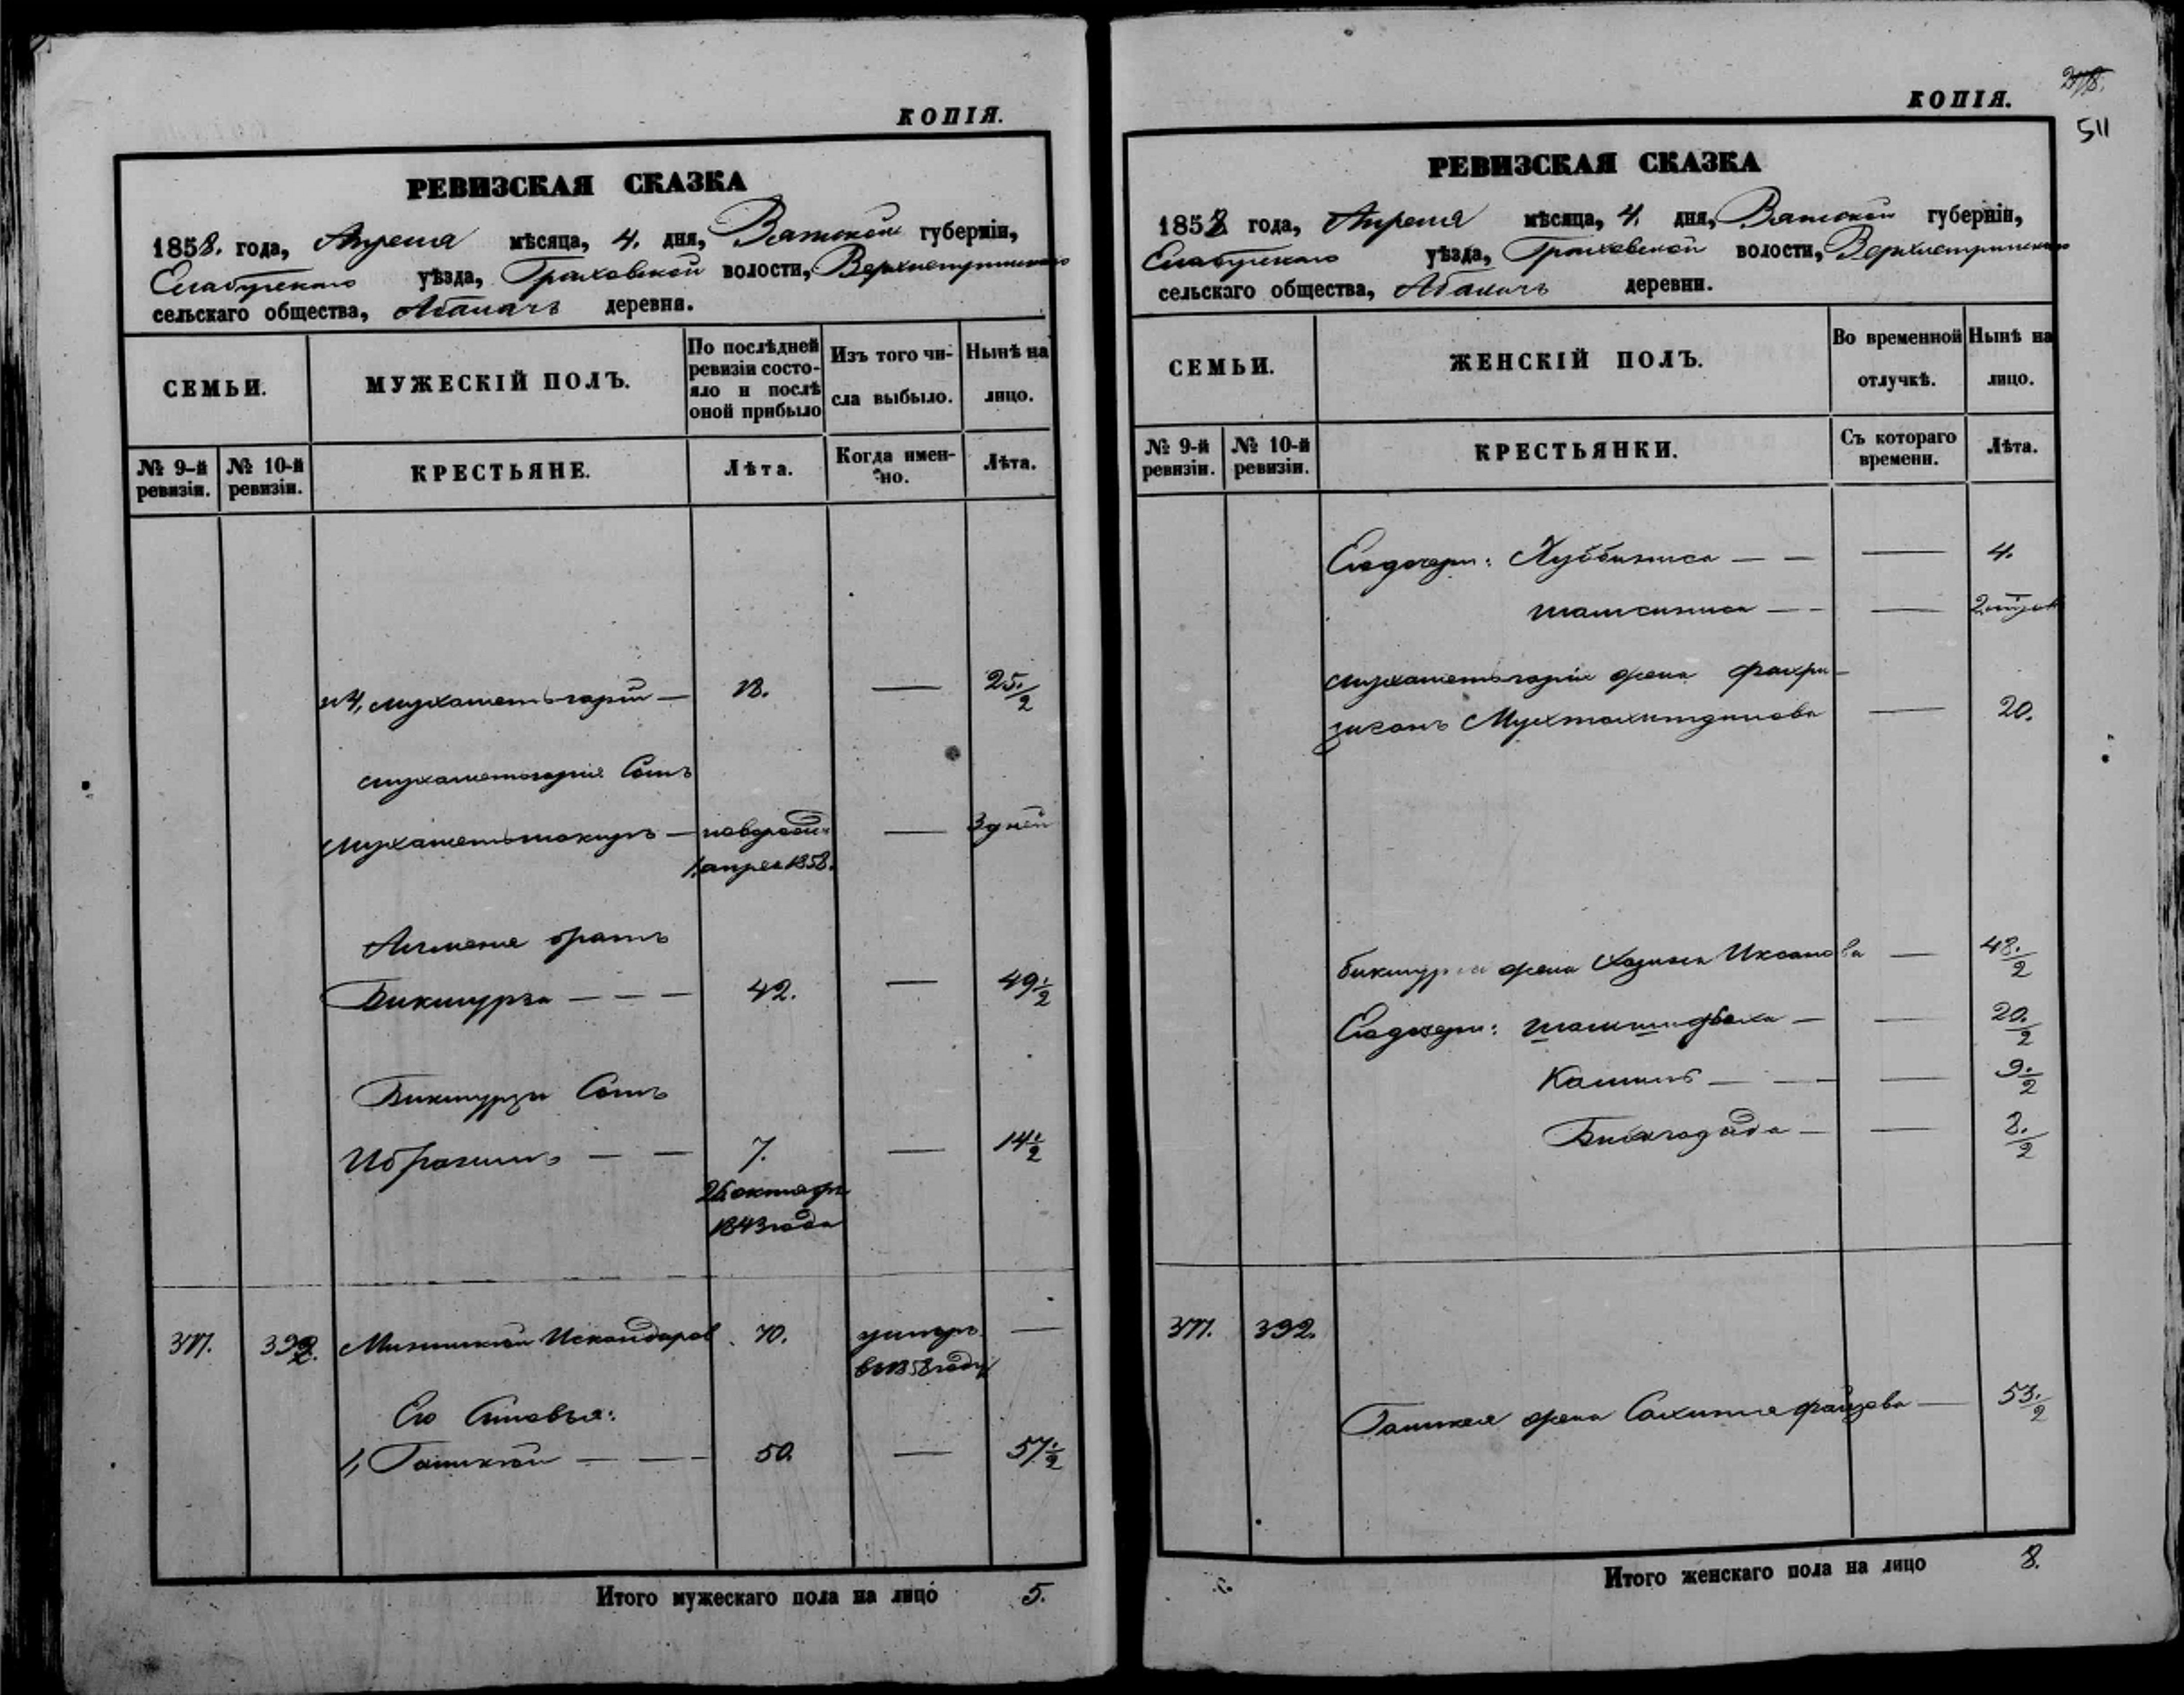 КОПІЯ.
РЕВИЗСКАЯ СКАЗКА
1858. года, Апреля мѣсяца, 4. дня, Вятской губерніи,
Елабугскаго уѣзда, Граховской волости,
сельскаго общества, Абалачъ деревни.
СЕМЬИ.
МУЖЕСКІЙ ПОЛЪ.
По послѣдней
ревизіи состо-
яло и послѣ
оной прибыло
Изъ того чи-
сла выбыло.
Нынѣ на
лицо.
№ 9-й
ревизіи.
№ 10-й
ревизіи.
КРЕСТЬЯНЕ.
Лѣта.
Когда имен-
но.
Лѣта.
Мухаметьгарій — 18. — 25 1/2
Мухаметьгарія Сынъ
Мухаметьшакиръ — новорожд. — 3 дней
1. апрел 1858.
братъ
Бикмурза — — — 42. — 49 1/2
Бикмурзы Сынъ
Ибрагимъ — — 7. — 14 1/2
26 октября
1843 года
377. 392. Минликей Искандаров 70. умеръ —
въ 1858 году
Его Сыновья:
1, Галикей — — — 50. — 57 1/2
Итого мужескаго пола на лицо 5.
КОПІЯ.
511
РЕВИЗСКАЯ СКАЗКА
1858 года, Апреля мѣсяца, 4. дня, Вятской губерніи,
Елабугскаго уѣзда, Граховской волости,
сельскаго общества, Абалачъ деревни.
СЕМЬИ.
ЖЕНСКІЙ ПОЛЪ.
Во временной
отлучкѣ.
Нынѣ на
лицо.
№ 9-й
ревизіи.
№ 10-й
ревизіи.
КРЕСТЬЯНКИ.
Съ котораго
времени.
Лѣта.
Его дочери: Хуббиниса — — — 4.
Шамсиниса — — —
Мухаметьгарія жена Фахри-
зиганъ — 20.
Бикмурзы жена Иксанова — 48 1/2
Его дочери: — — 20 1/2
— — 9 1/2
— — 8 1/2
377. 392.
Галикея жена Файзова — 53 1/2
Итого женскаго пола на лицо 8.